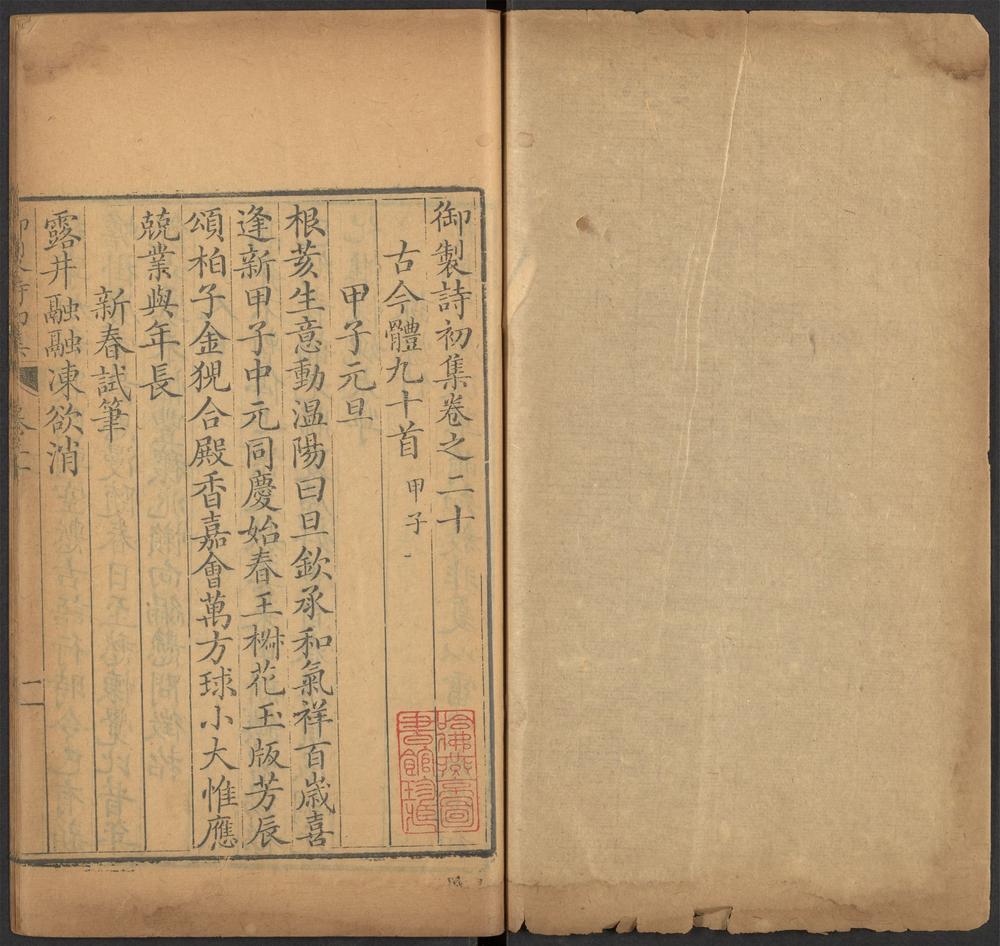 御製詩初集卷之二十
古今體九十首 甲子一
甲子元旦
根荄生意動温陽曰旦欽承和氣祥百歲喜
逢新甲子中元同慶始春王椒花玉版芳辰
頌柏子金猊合殿香嘉會萬方球小大惟應
兢業與年長
新春試筆
露井融融凍欲消
哈佛燕京圖
書館珍藏